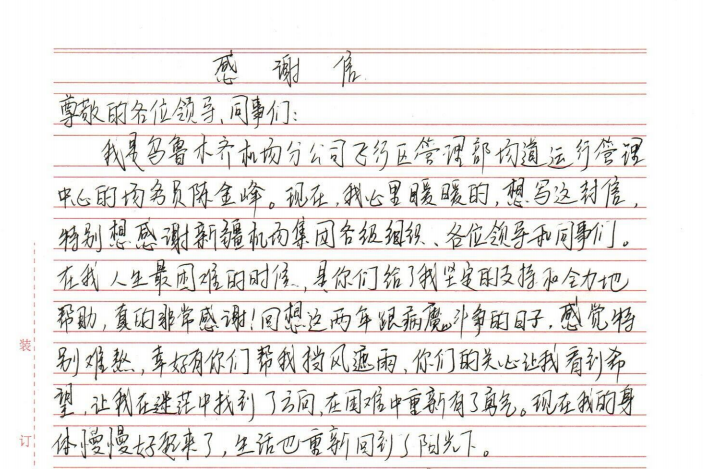 感谢信
尊敬的各位领导、同事们:
我是乌鲁木齐机场分公司飞行区管理部场道运行管理
中心的场务员陈金峰。现在,我心里暖暖的,想写这封信,
特别想感谢新疆机场集团各级组织、各位领导和同事们。
在我人生最困难的时候,是你们给了我坚定的支持和全力地
帮助,真的非常感谢!回想这两年跟病魔斗争的日子,感觉特
别难熬,幸好有你们帮我挡风遮雨,你们的关心让我看到希
装
望,让我在迷茫中找到了方向,在困难中重新有了勇气。现在我的身
订
体慢慢好起来了,生活也重新回到了阳光下。